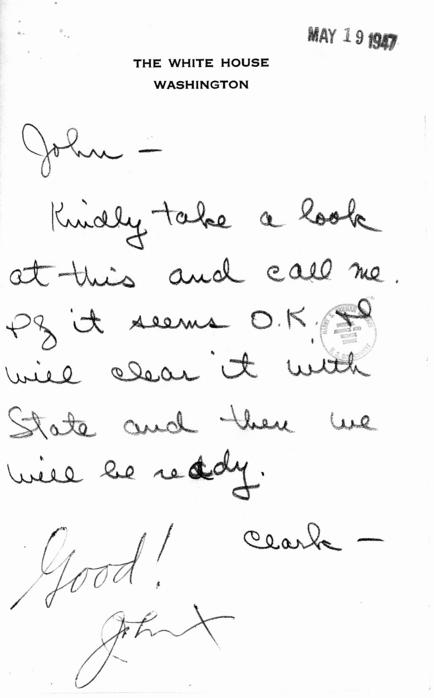 MAY 19 1947
THE WHITE HOUSE
WASHINGTON
John —
Kindly take a look
at this and call me.
If it seems O.K. I
will clear it with
State and then we
will be ready.
Clark —
Good!
John